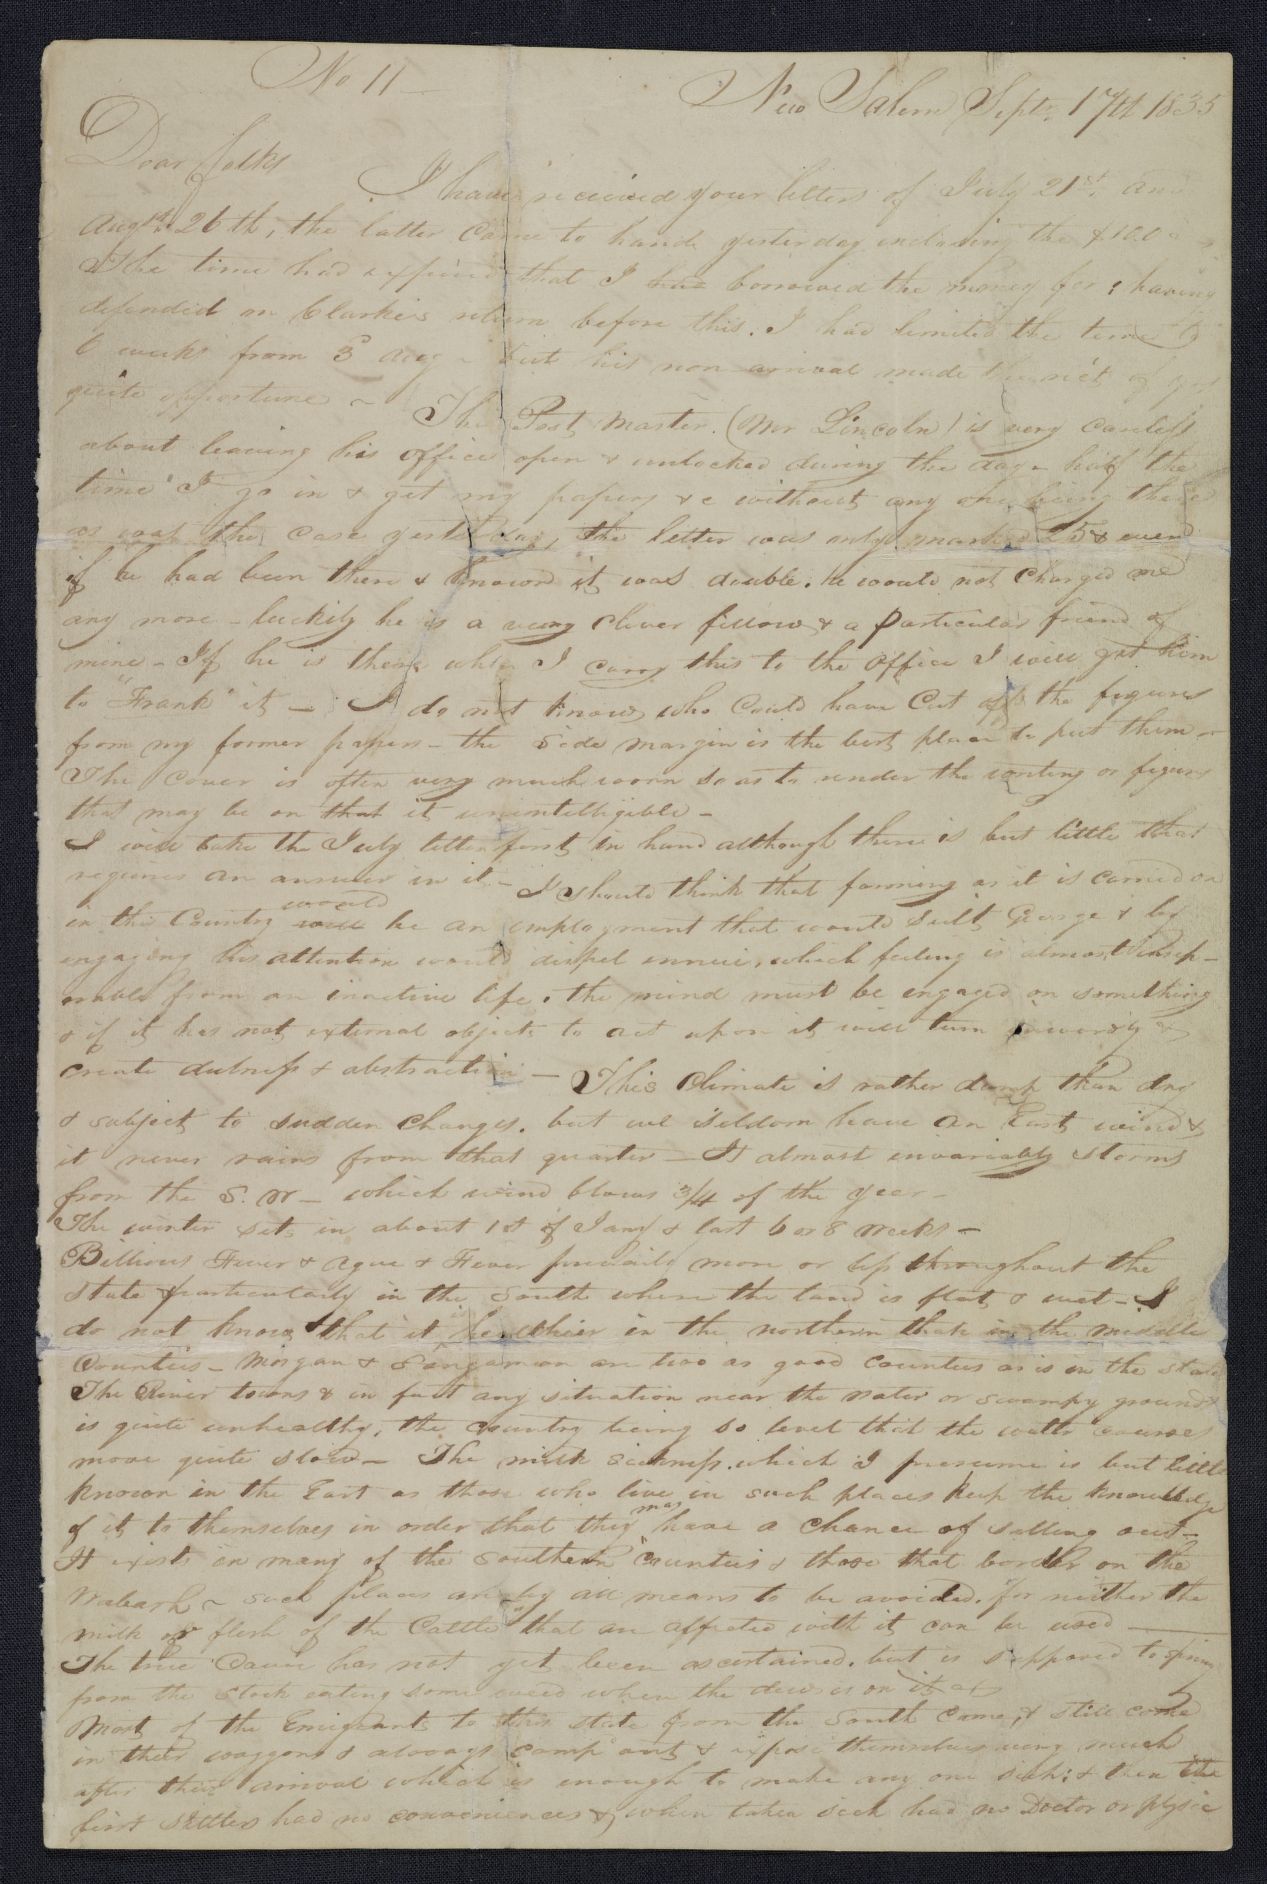 No 11
New Salem Septr. 17th 1835
Dear folks
I have received your letters of July 21st. and
Augst. 26th, the latter came to hand yesterday enclosing the $100
The time had expired that I had borrowed the money for, having
depended on Clarke's return before this. I had limited the time to
6 weeks from 3d Aug - but his non arrival made the rec't of yrs
quite opportune ~ The Post Master. (Mr Lincoln) is very careless
about leaving his office open & unlocked during the day - half the
time I go in & get my papers &c without any one being there
as was the case yesterday, the letter was only marked 25 & even
if he had been there & known it was double, he would not charged me
any more - luckily he is a very clever fellow & a particular friend of
mine - If he is there when I carry this to the office I will get him
to "Frank" it - I do not know who could have cut off the figures
from my former papers - the side margin is the best place to put them -
The cover is often very much worn so as to render the writing or figures
that may be on that it unintelligible -
I will take the July letter first in hand although there is but little that
requires an answer in it - I should think that farming as it is carried on
in this Country will would be an employment that would suit George & by
engaging his attention would dispel ennui, which feeling is almost insep-
arable from an inactive life, the mind must be engaged on something
& if it has not external objects to act upon it will turn inwardly &
create dulness & abstraction - This Climate is rather damp than dry
& subject to sudden changes, but we seldom have an East wind &
it never rains from that quarter - It almost invariably storms
from the S. W - which wind blows 3/4 of the year -
The winter sets in about 1st of Jany & last 6 or 8 weeks -
Billious Fever & Ague & Fever prevails more or less throughout the
state particularly in the South where the land is flat & wet - I
do not know that it is healthier in the northern than in the middle
Counties - Morgan & Sangamon are two as good counties as is in the state
The River towns & in fact any situation near the water or swampy ground
is quite unhealthy, the country being so level that the water courses
move quite slow - The milk sickness, which I presume is but little
known in the East as those who live in such places keep the knowledge
of it to themselves in order that they may have a chance of selling out -
It exists in many of the Southern Counties & those that border on the
Wabash ~ such places are by all means to be avoided, for neither the
milk or flesh of the Cattle that are affected with it can be used
The true Cause has not yet been ascertained, but is supposed to spring
from the Stock eating some weed when the dew is on it
Most of the Emigrants to this state from the South came, & still come
in their waggons & always camp out & expose themselves very much
after their arrival which is enough to make any one sick: & then the
first Settlers had no conveniences & when taken sick had no Doctor or physic